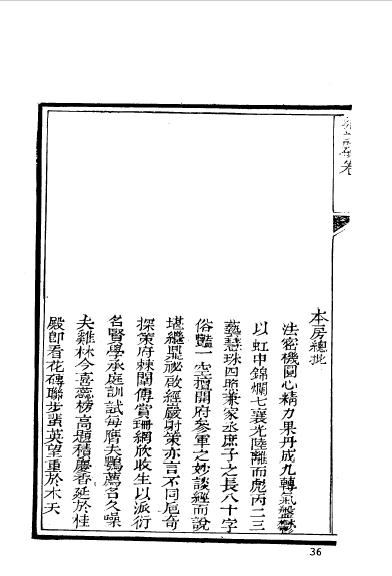 卷
本房總批
法密機圓心精力果丹成九轉氣盤鬱
以虹中錦爛七襄光陸離而彪丙二三
藝慧珠四照兼家丞庶子之長八十字
俗豔一空擅開府參軍之妙談經而說
堪繼鼎祕啟經嚴射策亦言不同卮奇
探策府棘闈傳賞珊網欣收生以派衍
名賢學承庭訓試每膺夫鶚薦名久噪
夫雞林今喜蕊榜高題積慶香延於桂
殿即看花磚聯步蜚英望重於木天
36